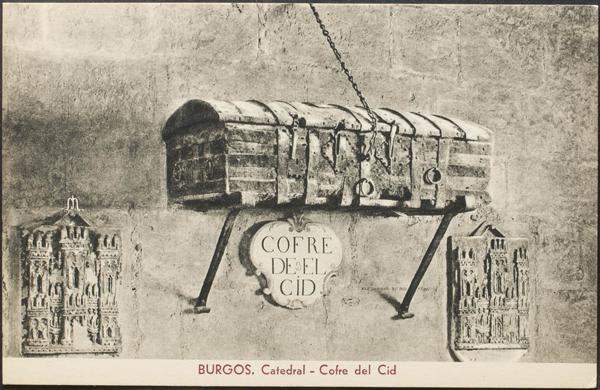 COFRE
DE EL
CID
BURGOS. Catedral - Cofre del Cid